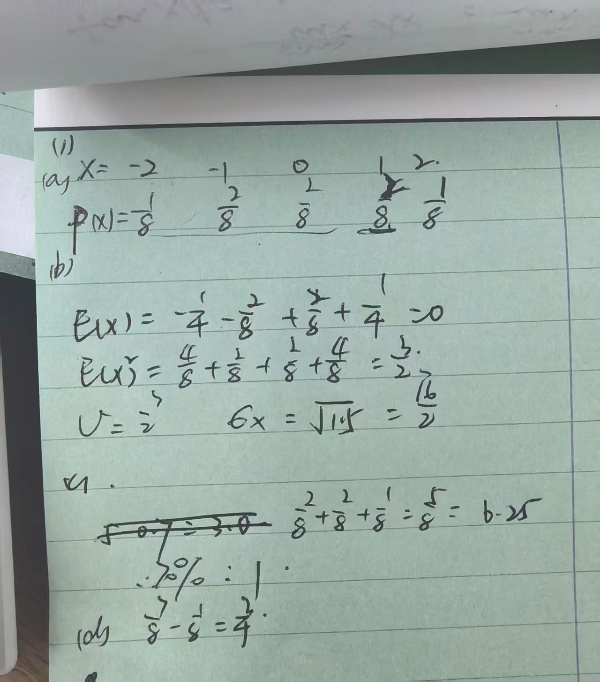 (1)
(a) X= -2 -1 0 1 2.
P(x)= 1/8 2/8 2/8 2/8 1/8
(b)
E(x) = -1/4 - 2/8 + 2/8 + 1/4 =0
E(x²) = 4/8 + 2/8 + 2/8 + 4/8 = 3/2.
V = 3/2 6x = √1.5 = √6/2
2/8 + 2/8 + 1/8 = 5/8 = 6.25
(d) 7/8 - 1/8 = 3/4.